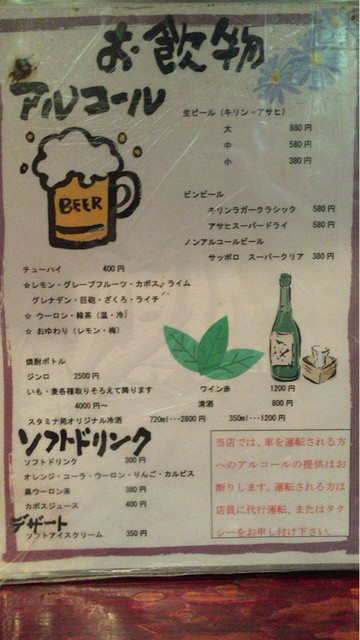 お飲物
アルコール
生ビール（キリン・アサヒ）
大 880円
中 580円
小 380円
BEER
ビンビール
キリンラガークラシック 580円
アサヒスーパードライ 580円
ノンアルコールビール
サッポロ スーパークリア 380円
チューハイ 400円
☆レモン・グレープフルーツ・カボス・ライム
グレナデン・巨砲・ざくろ・ライチ
☆ ウーロン・緑茶（温・冷）
☆ おゆわり（レモン・梅）
焼酎ボトル
ジンロ 2500円
いも・麦各種取りそろえて降ります
4000円〜
ワイン赤 1200円
清酒 800円
スタミナ苑オリジナル冷酒 720ml…2800円 350ml…1200円
ソフトドリンク
ソフトドリンク 300円
オレンジ・コーラ・ウーロン・りんご・カルピス
黒ウーロン茶 380円
カボスジュース 400円
デザート
ソフトアイスクリーム 350円
当店では、車を運転される方
へのアルコールの提供はお
断りします。運転される方は
店員に代行運転、またはタク
シーをお申し付け下さい。